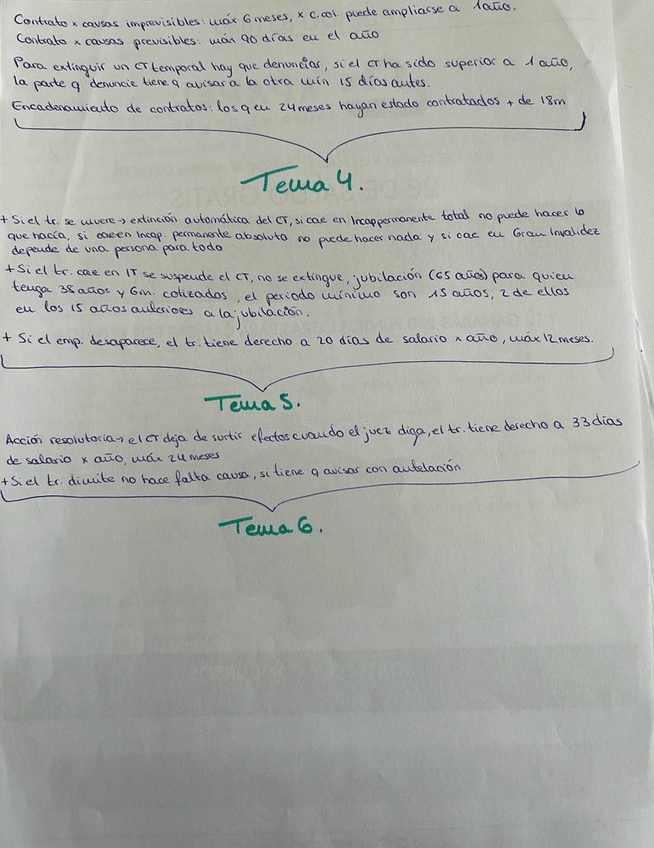 Contrato x causas imprevisibles: máx 6 meses, x c.col. puede ampliarse a 1 año.
Contrato x causas previsibles: máx 90 días en el año
Para extinguir un CT temporal hay que denunciar, si el CT ha sido superior a 1 año,
la parte q denuncie tiene q avisar a la otra mín 15 días antes.
Encadenamiento de contratos: los q en 24 meses hayan estado contratados + de 18m
Tema 4.
+ Si el tr. se muere → extinción automática del CT, si cae en Incap permanente total no puede hacer lo
que hacía, si cae en Incap. permanente absoluta no puede hacer nada y si cae en Gran Invalidez
depende de una persona para todo
+ Si el tr. cae en IT se suspende el CT, no se extingue, jubilación (65 años) para quien
tenga 38 años y 6m. cotizados, el periodo mínimo son 15 años, 2 de ellos
en los 15 años anteriores a la jubilación.
+ Si el emp. desaparece, el tr. tiene derecho a 20 días de salario x año, máx 12 meses.
Tema 5.
Acción resolutoria → el CT deja de surtir efectos cuando el juez diga, el tr. tiene derecho a 33 días
de salario x año, máx 24 meses
+ Si el tr. dimite no hace falta causa, si tiene q avisar con antelación
Tema 6.